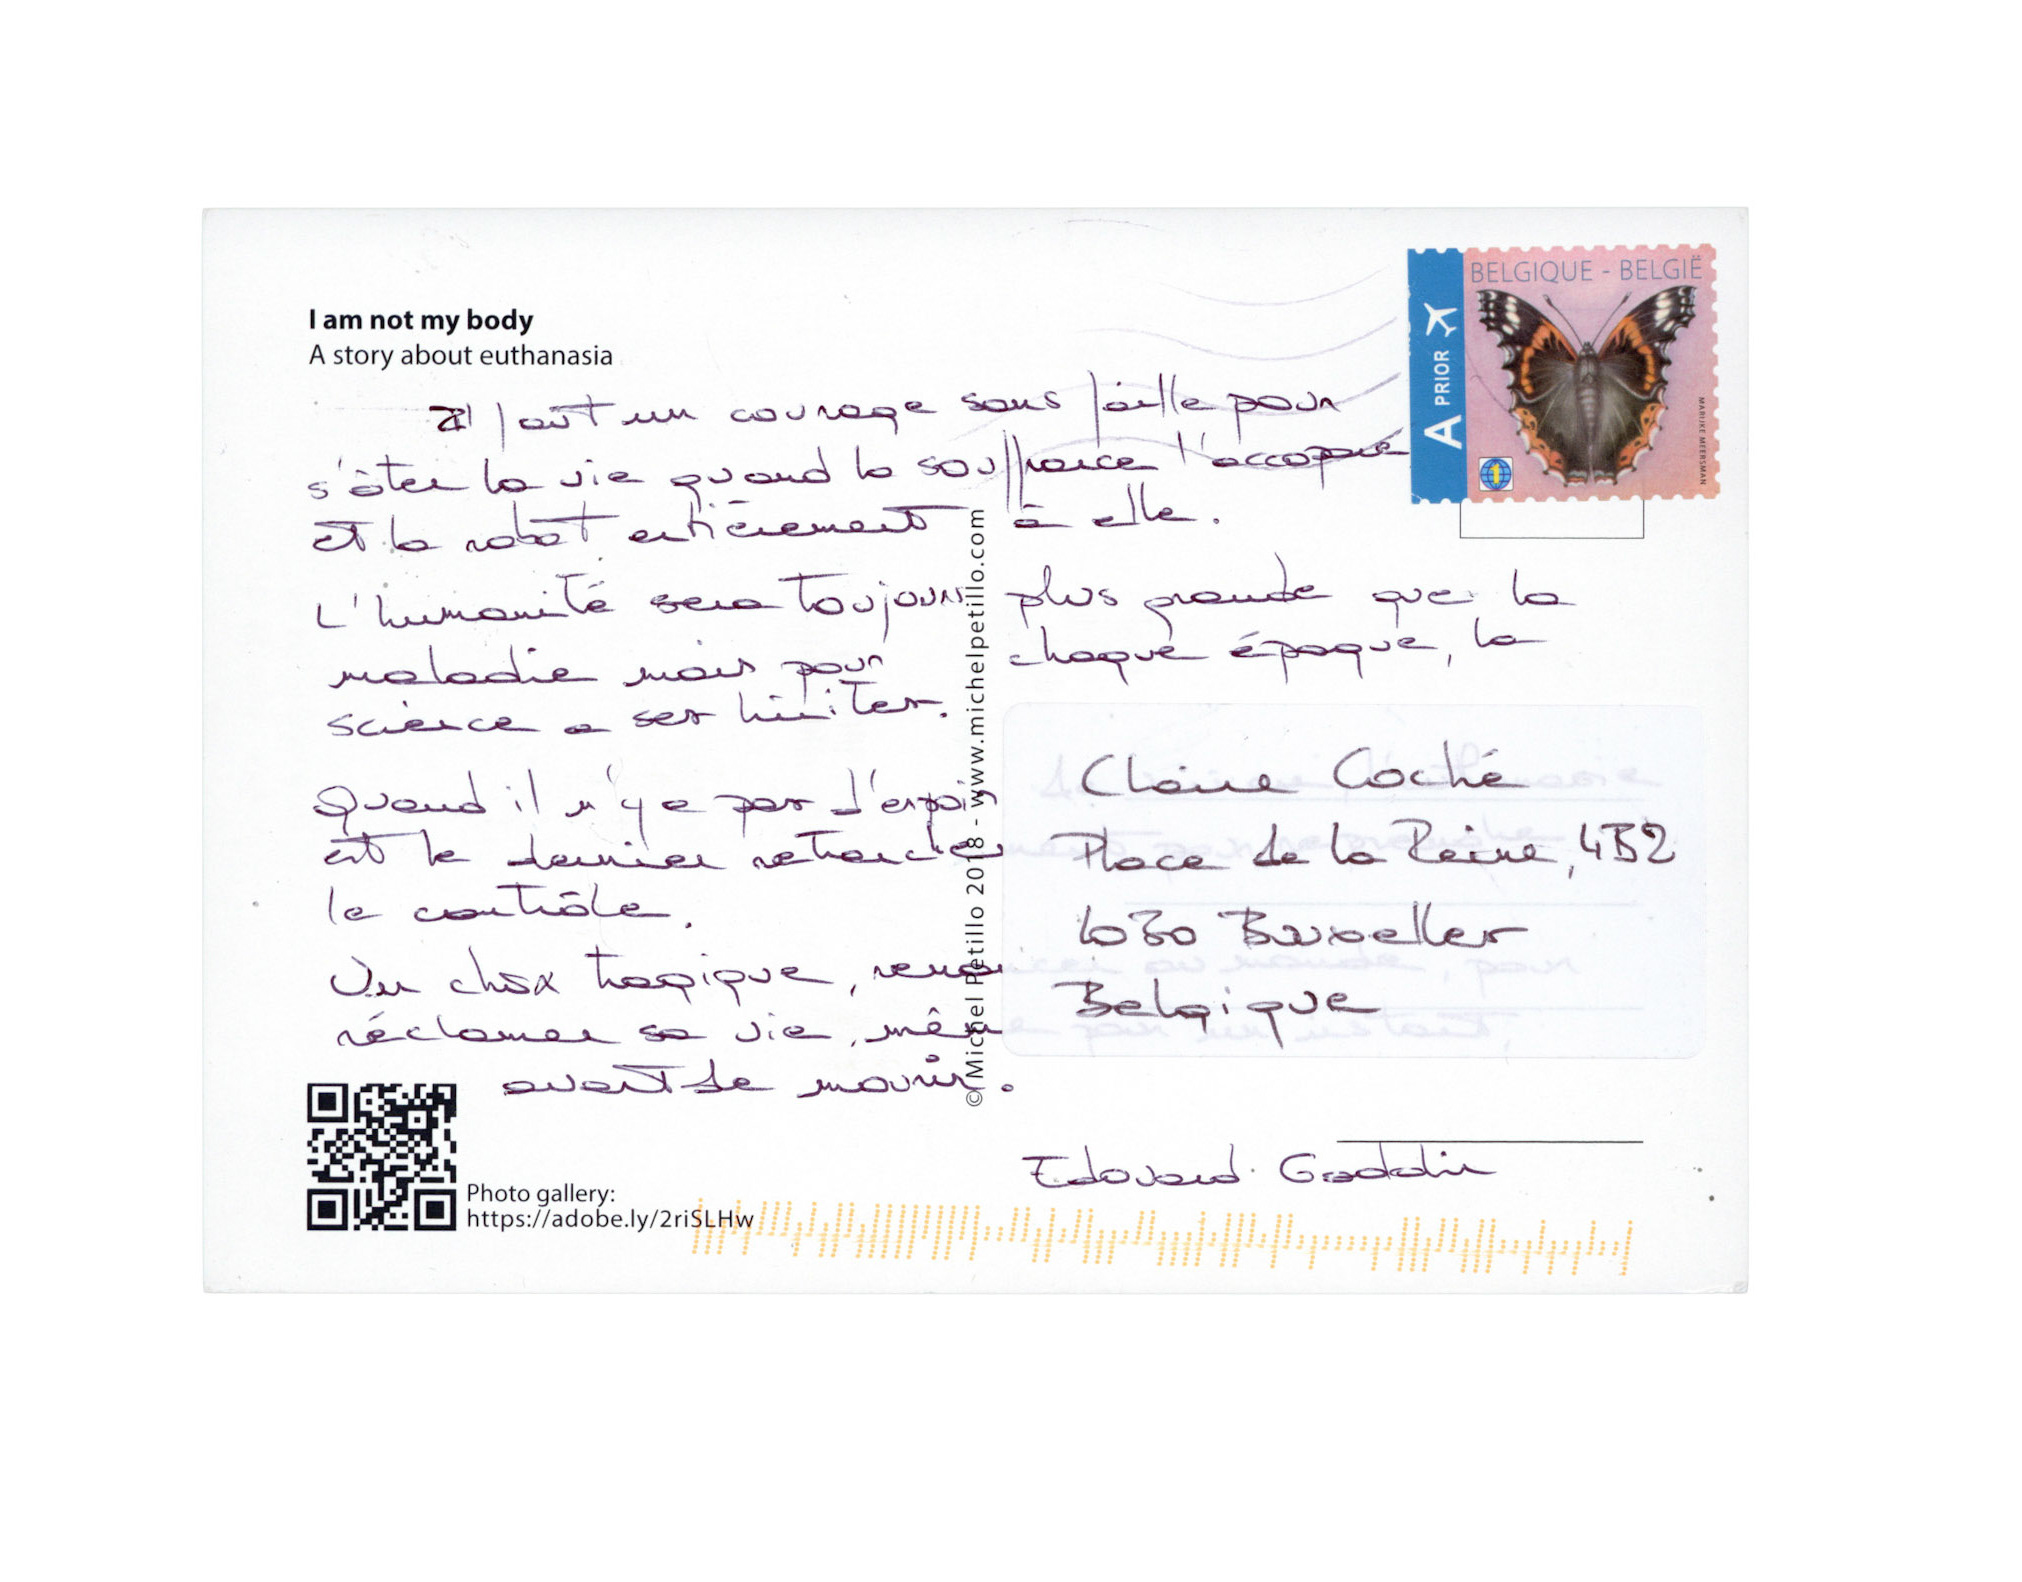 BELGIQUE - BELGIË
A PRIOR
MARIJKE MEERSMAN
1
I am not my body
A story about euthanasia
Il faut un courage sans faille pour
s'ôter la vie quand la souffrance l'accapare
et la rabat entièrement à elle.
L'humanité sera toujours plus grande que la
maladie mais pour chaque époque, la
science a ses limites.
Quand il n'y a pas d'espoir
est le dernier
le contrôle.
Un choix tragique,
réclamer sa vie, même
avant de mourir.
Claire Coché
Place de la Reine, 4B2
1030 Bruxelles
Belgique
Edouard
© Michel Petillo 2018 - www.michelpetillo.com
Photo gallery:
https://adobe.ly/2riSLHw